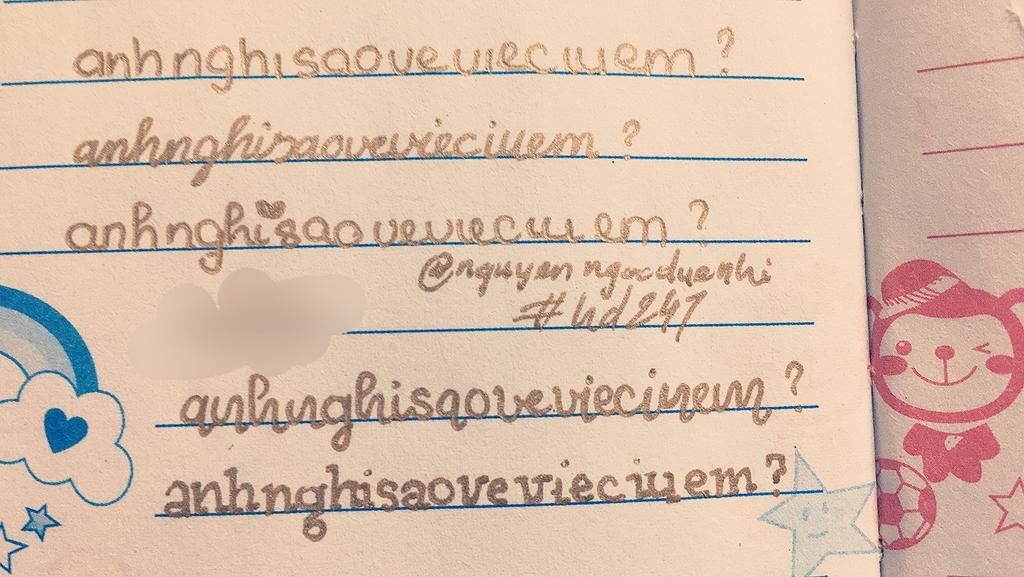 anhnghisaovevieciuem ?
anhnghisaovevieciuem ?
anhnghisaovevieciuem ?
@nguyenngocduenhi
#hd247
anhnghisaovevieciuem ?
anhnghisaovevieciuem ?